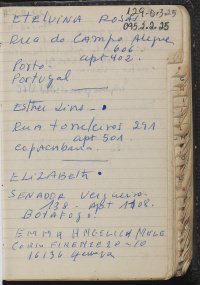 129-6325
ETELVINA ROSAS
095.2.2.25
Rua do Campo Alegre
606.
apt 402.
Porto.
Portugal
Esther Lins
Rua Toneleiros 291
apt 501
Copacabana
ELIZABETH
SENADOR Vergueiro
128. Apt 1108.
BOTAFOGO.
EMMA ANGELICA MOLE
CORSO FIRENZE 20-10
16136 Genova